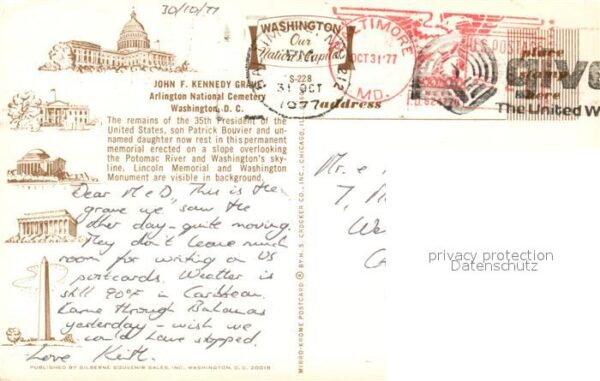 30/10/77
WASHINGTON
Our
Nation's Capital
BALTIMORE
OCT 31 '77
MD.
U.S. POSTAGE
S-228
31 OCT
1977
place
stamp
here
address
give
The United W
JOHN F. KENNEDY GRAVE
Arlington National Cemetery
Washington, D. C.
The remains of the 35th President of the
United States, son Patrick Bouvier and un-
named daughter now rest in this permanent
memorial erected on a slope overlooking
the Potomac River and Washington's sky-
line. Lincoln Memorial and Washington
Monument are visible in background.
Dear M & D, This is the
grave we saw the
other day - quite moving.
They don't leave much
room for writing on US
postcards. Weather is
still 90°F in Caribbean.
Came through Bahamas
yesterday - wish we
could have stopped.
Love Keith.
PUBLISHED BY SILBERNE SOUVENIR SALES, INC., WASHINGTON, D. C. 20018
MIRRO-KROME POSTCARD © BY H. S. CROCKER CO., INC., CHICAGO, IL
Mr. &
7,
We
privacy protection
Datenschutz